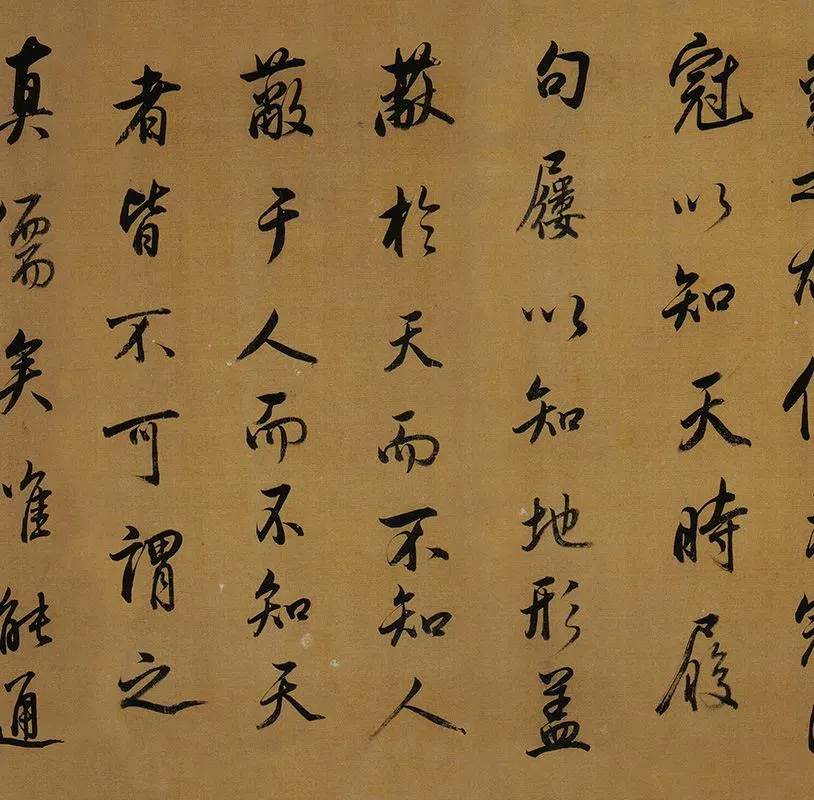 冠以知天時履
句屨以知地形蓋
蔽於天而不知人
蔽于人而不知天
者皆不可謂之
真儒矣唯能通